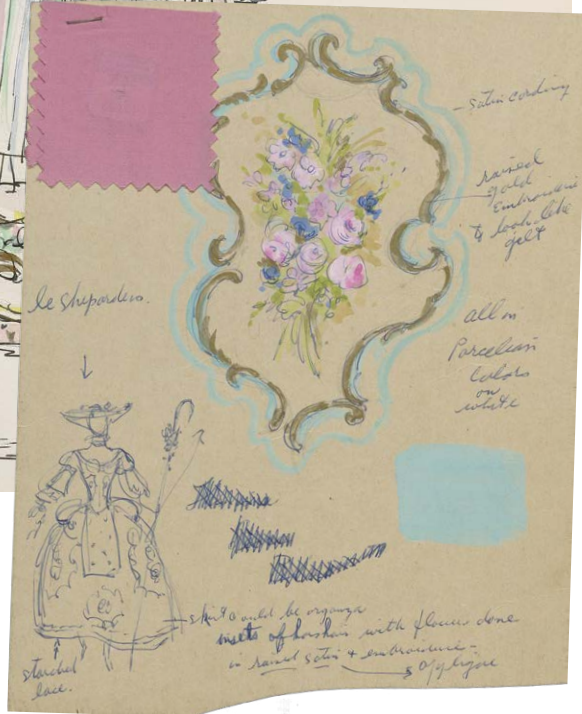 - satin cording
raised
gold
Embroiderie
to look like
gilt
le shepardess.
all in
Porcelian
Colors
on
white
skirt could be organza
insets of horshair with flowers done
in raised satin + embroiderie -
applique
starched
lace.